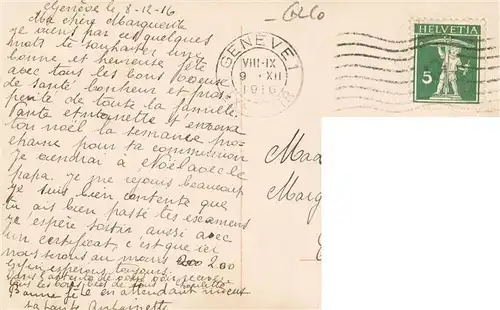 Genève le 8-12-16
Ma chère Marguerite
Je viens par ces quelques
mots te souhaiter une
bonne et heureuse fête
avec tous les bons voeux
de santé bonheur et pros-
périté de toute la famille.
Tante Antoinette enverra
ton noël la semaine pro-
chaine pour ta commission
Je viendrai à Noël avec le
papa. Je me rejouis beaucoup
Je suis bien contente que
tu ais bien passé tes examens
J'espère sortir aussi avec
un certificat, c'est que ici
nous serons au moins 200
bien esperons toujours.
tous les bons
Bonne fête en attendant mieux
ta tante Antoinette
GENÈVE 1
VIII-IX
9 XII
1916
HELVETIA
5
Mad
Marg